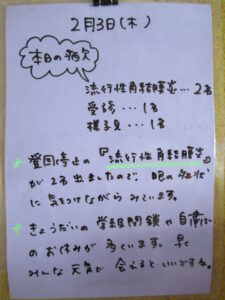 2月3日(木)
本日の病欠
流行性角結膜炎…2名
受診…1名
様子見…1名
＊登園停止の『流行性角結膜炎』
が2名出ましたので、眼の症状
に気をつけながらみています。
＊きょうだいの学級閉鎖や自粛で
のお休みが多いです。早く
みんな元気で会えるといいですね。